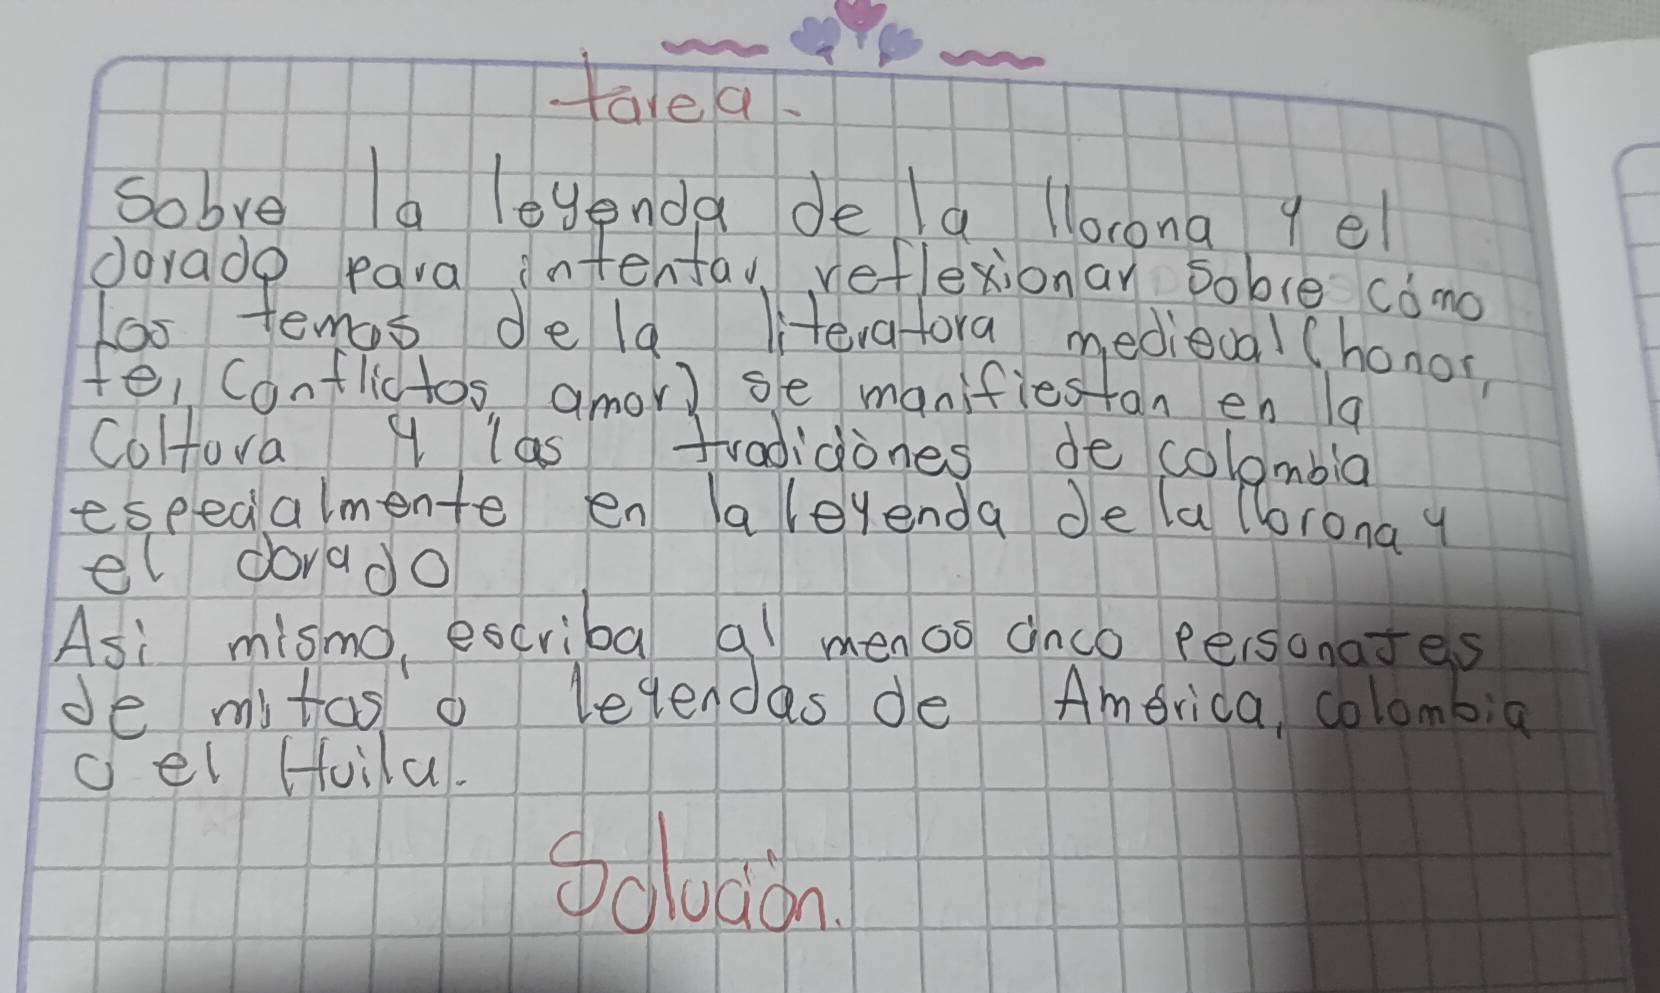 tarea.
Sobre la leyenda de la llorona y el
dorado para intentar reflexionar sobre cómo
los temas de la literatora medieval (honor,
fe, conflictos, amor) se manifiestan en la
Coltora y las tradiciones de colombia
especialmente en la leyenda de la llorona y
el dorado
Asi mismo, escriba al menos cinco personajes
de mitos o leyendas de América, colombia
o el Huila.
Solución.